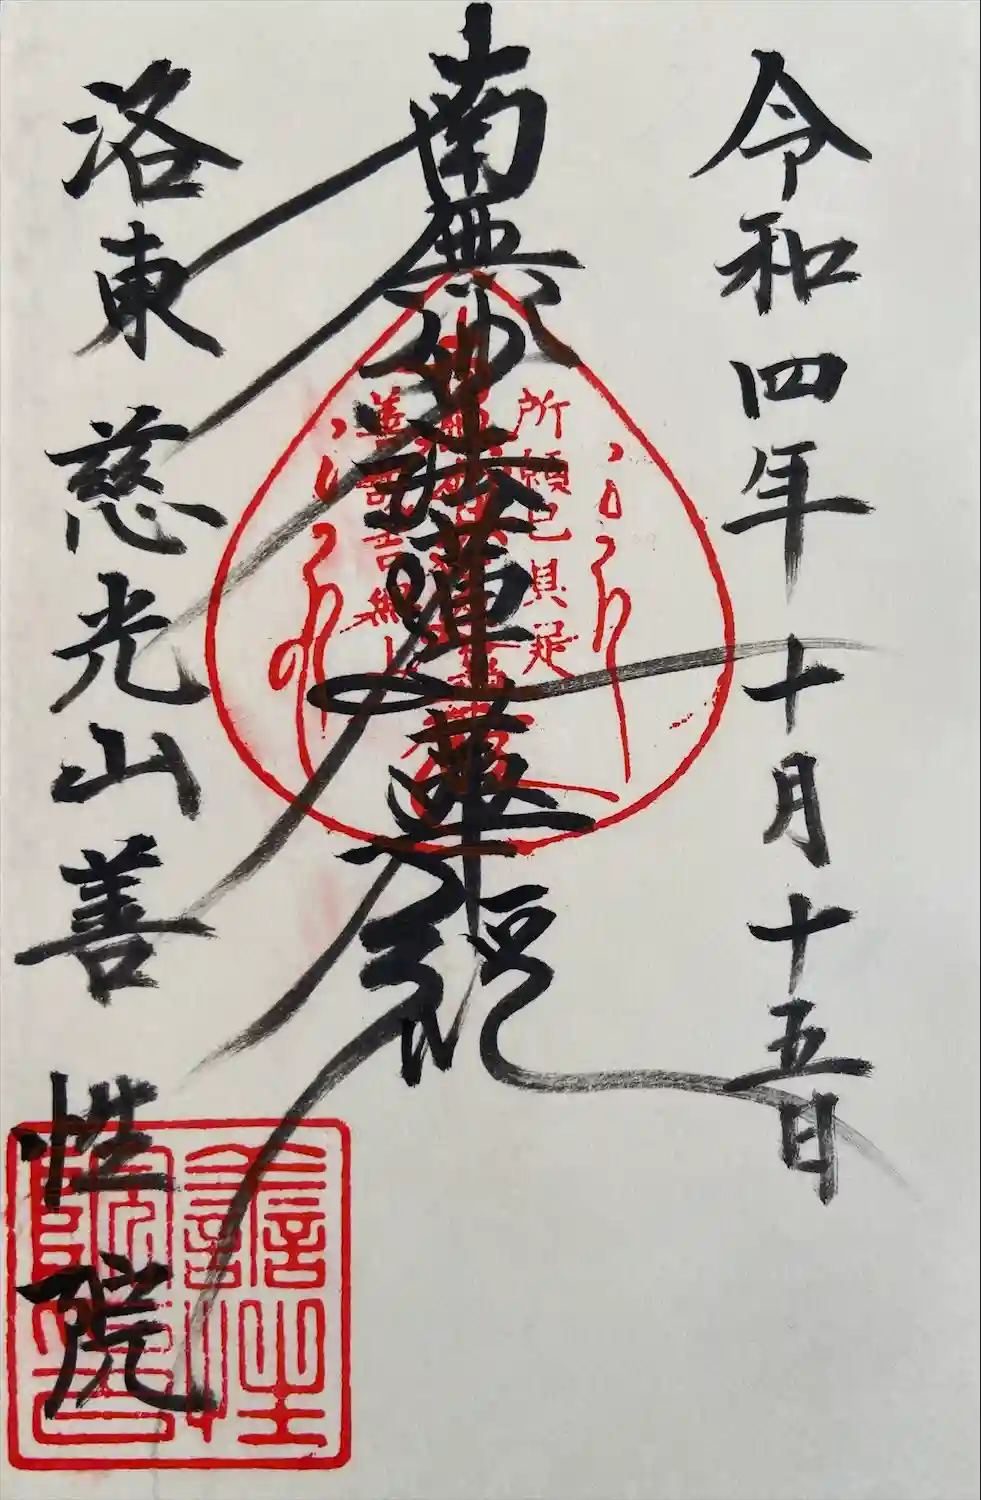 令和四年十月十五日
南無妙法蓮華経
洛東慈光山善性院
所願已具足
善性院